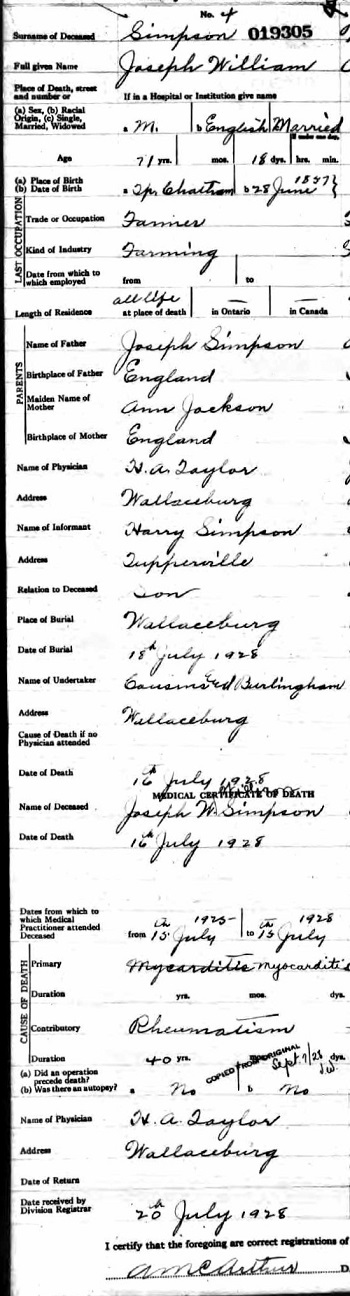 No. 4
Surname of Deceased Simpson 019305
Full given Name Joseph William
Place of Death, street and number or If in a Hospital or Institution give name
(a) Sex, (b) Racial Origin, (c) Single, Married, Widowed a M. b English Married
If under one day
Age 71 yrs. mos. 18 dys. hrs. min.
(a) Place of Birth
(b) Date of Birth a Tp. Chatham b 28 June 1857
LAST OCCUPATION
Trade or Occupation Farmer
Kind of Industry Farming
Date from which to which employed from to
all life — —
Length of Residence at place of death in Ontario in Canada
PARENTS
Name of Father Joseph Simpson
Birthplace of Father England
Maiden Name of Mother Ann Jackson
Birthplace of Mother England
Name of Physician H. A. Taylor
Address Wallaceburg
Name of Informant Harry Simpson
Address Tupperville
Relation to Deceased Son
Place of Burial Wallaceburg
Date of Burial 18th July 1928
Name of Undertaker Cousins and Burlingham
Address Wallaceburg
Cause of Death if no Physician attended
Date of Death 16th July 1928
MEDICAL CERTIFICATE OF DEATH
Name of Deceased Joseph W. Simpson
Date of Death 16th July 1928
Dates from which to which Medical Practitioner attended Deceased from 15th July 1925 to 15th July 1928
CAUSE OF DEATH
Primary Mycarditis Myocarditis
Duration yrs. mos. dys.
Contributory Rheumatism
Duration 40 yrs. dys.
COPIED FROM ORIGINAL Sept 7/28
(a) Did an operation precede death?
(b) Was there an autopsy? a No b No
Name of Physician H. A. Taylor
Address Wallaceburg
Date of Return
Date received by Division Registrar 20th July 1928
I certify that the foregoing are correct registrations of
A McArthur D